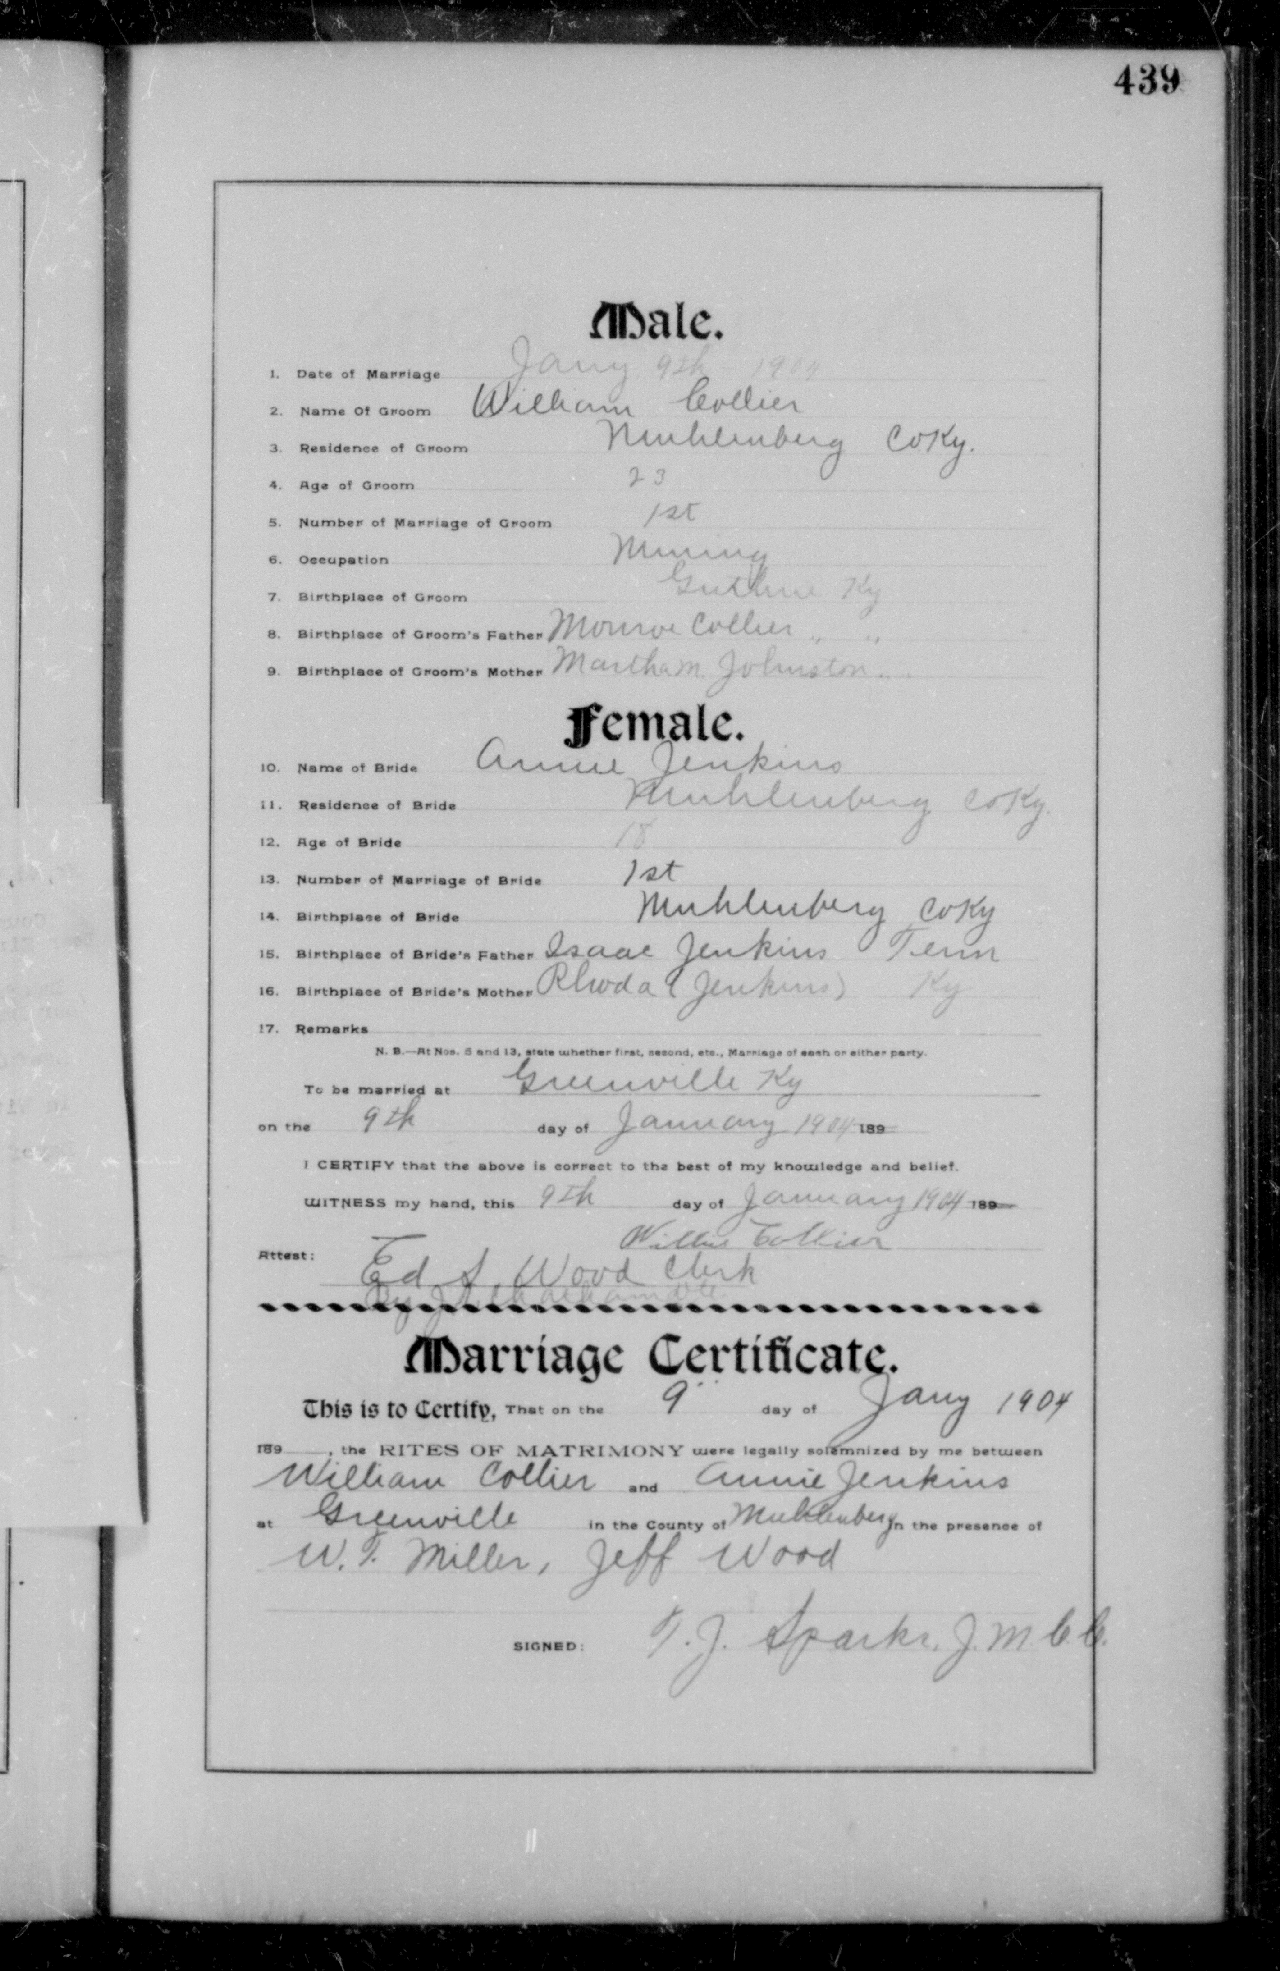 439
Male.
1. Date of Marriage Jany 9th 1904
2. Name Of Groom William Collier
3. Residence of Groom Muhlenberg Co Ky.
4. Age of Groom 23
5. Number of Marriage of Groom 1st
6. Occupation Mining
7. Birthplace of Groom Guthrie Ky
8. Birthplace of Groom's Father Monroe Collier " "
9. Birthplace of Groom's Mother Martha M. Johnston " "
Female.
10. Name of Bride Annie Jenkins
11. Residence of Bride Muhlenberg Co Ky.
12. Age of Bride 18
13. Number of Marriage of Bride 1st
14. Birthplace of Bride Muhlenberg Co Ky
15. Birthplace of Bride's Father Isaac Jenkins Tenn
16. Birthplace of Bride's Mother Rhoda (Jenkins) Ky
17. Remarks
N. B.—At Nos. 5 and 13, state whether first, second, etc., Marriage of each or either party.
To be married at Greenville Ky
on the 9th day of January 1904 189
I CERTIFY that the above is correct to the best of my knowledge and belief.
WITNESS my hand, this 9th day of January 1904 189
Willie Collier
Attest: Ed S. Wood Clerk
By
Marriage Certificate.
This is to Certify, That on the 9" day of Jany 1904
189 , the RITES OF MATRIMONY were legally solemnized by me between
William Collier and Annie Jenkins
at Greenville in the County of Muhlenberg in the presence of
W. T. Miller, Jeff Wood
SIGNED: T. J. Sparks, J. M. C. C.